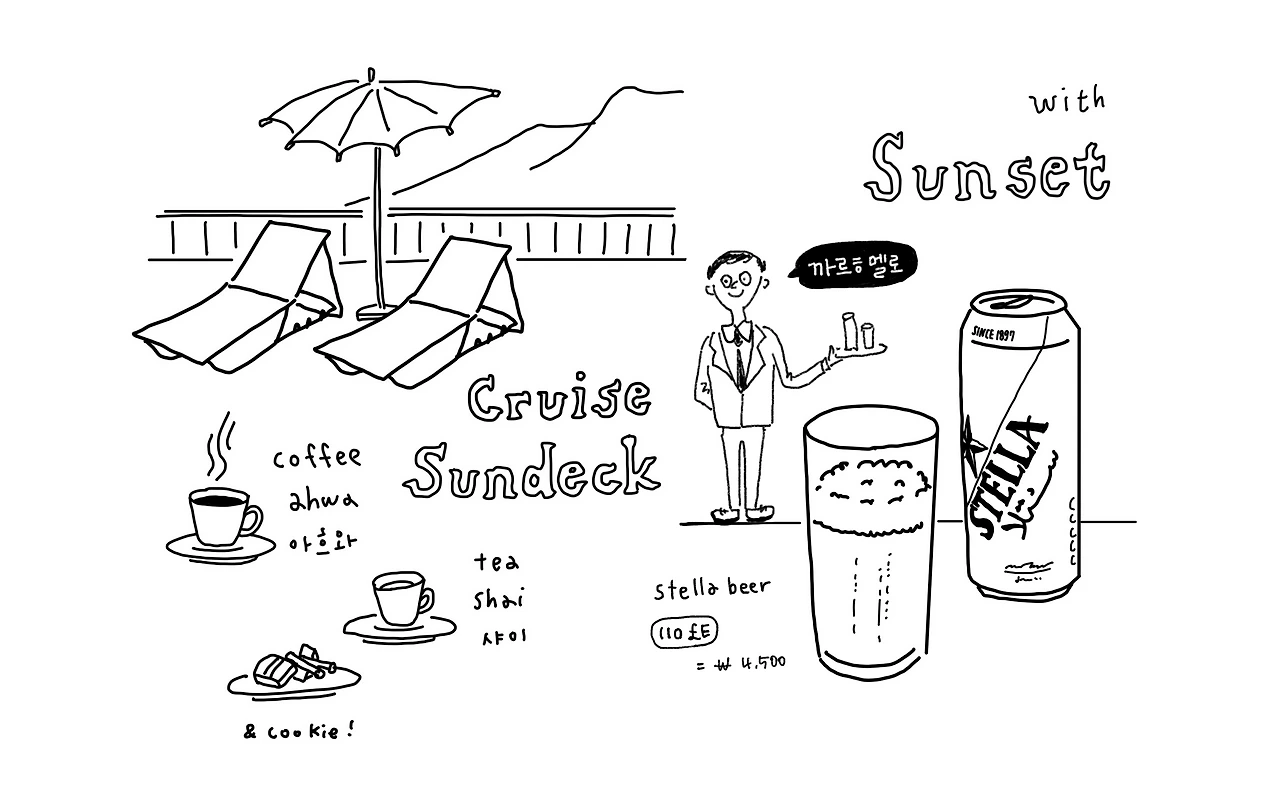 with
Sunset
까르흐 멜로
SINCE 1897
STELLA
Cruise
Sundeck
coffee
ahwa
아흐와
tea
shai
샤이
& cookie!
stella beer
110 £E
= ₩ 4,500